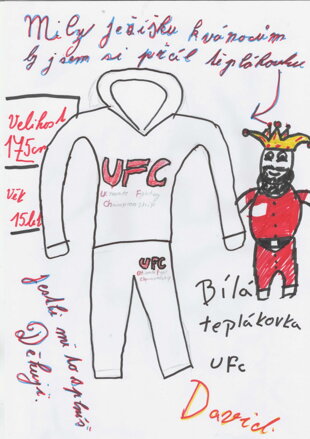 Milý ježíšku k vánocům
by jsem si přál teplákovku
Velikost
175cm
Věk
15let
UFC
Ultimate Fighting
Championship
UFC
Ultimate Fighting
Championship
Jestli mi to splníš
Děkuji.
Bílá
teplákovka
UFC
David.